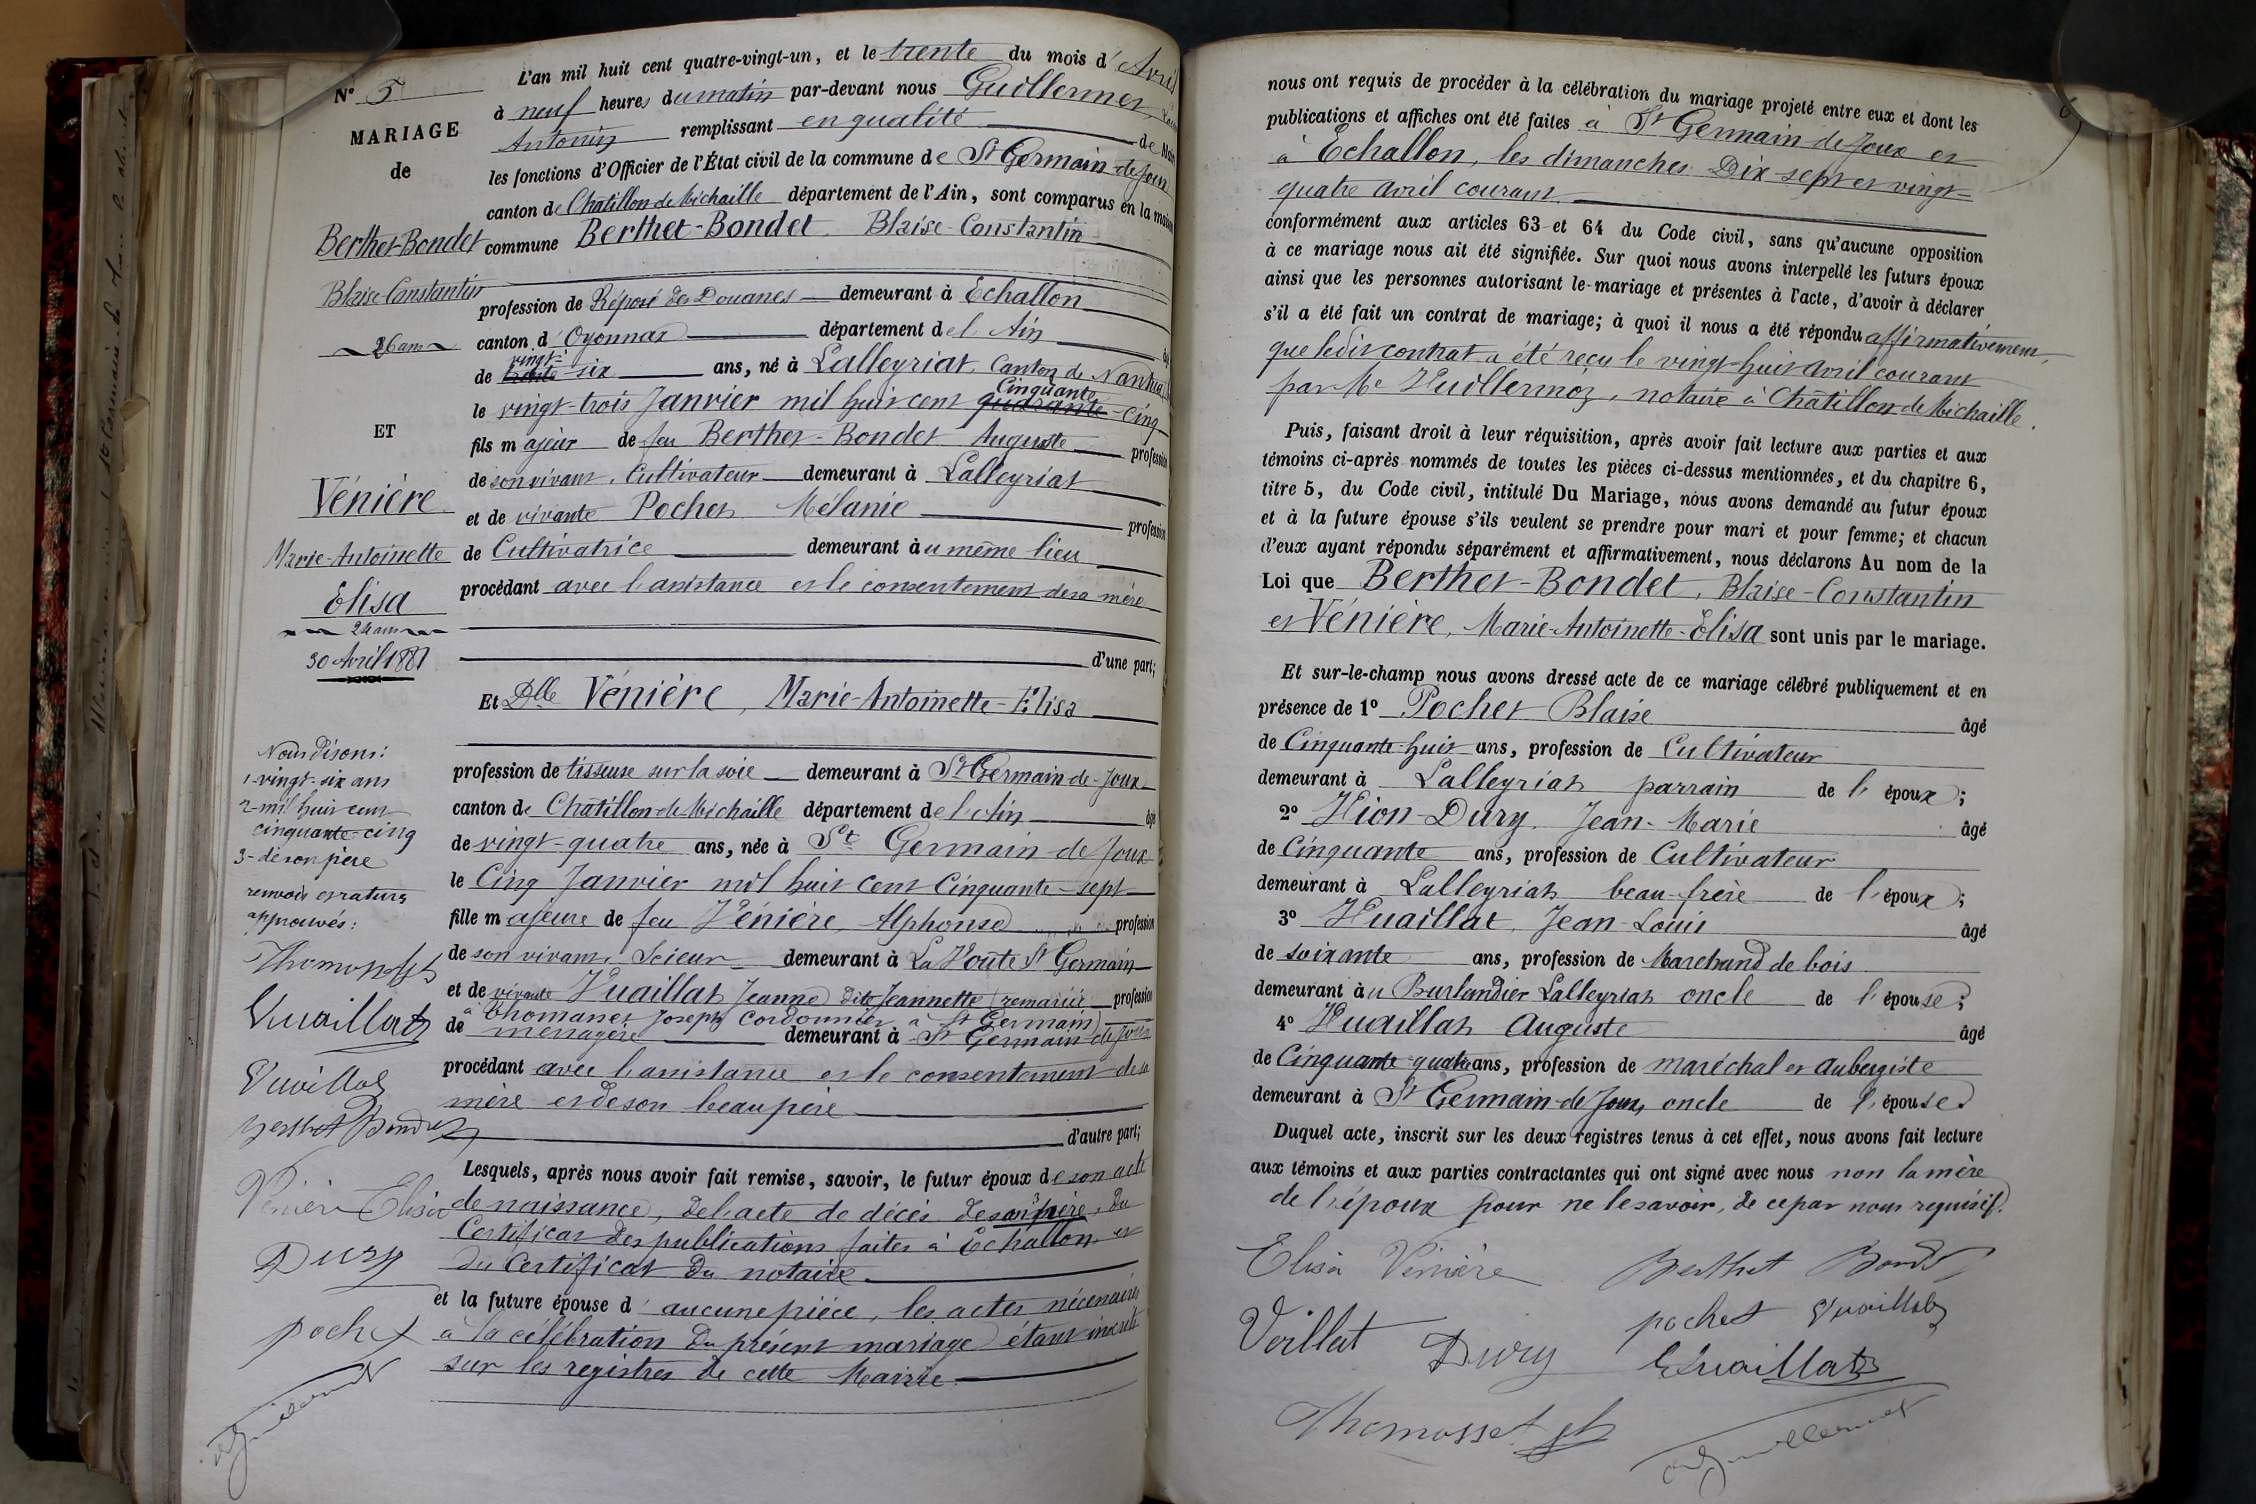 N° 5
MARIAGE
de
Berthet-Bondet
Blaise-Constantin
26 ans
ET
Vénière
Marie-Antoinette
Elisa
24 ans
30 Avril 1881
Nous disons:
1- vingt-six ans
2- mil huit cent
cinquante-cinq
3- de son père
renvois et ratures
approuvés:
Vuaillat
Vuaillat
Berthet Bondet
Vénière Elisa
Dury
pochet
L'an mil huit cent quatre-vingt-un, et le trente du mois d'Avril
à neuf heures du matin par-devant nous Guillermet,
Antonin remplissant en qualité de Maire
les fonctions d'Officier de l'État civil de la commune de St Germain-de-Joux
canton de Châtillon-de-Michaille département de l'Ain, sont comparus en la maison
commune Berthet-Bondet Blaise-Constantin
profession de Préposé des Douanes demeurant à Echallon
canton d'Oyonnax département de l'Ain
vingt-
de trente six ans, né à Lalleyriat, Canton de Nantua
Cinquante
le vingt-trois Janvier mil huit cent quarante-cinq
fils majeur de feu Berthet-Bondet Auguste profession
de son vivant, Cultivateur demeurant à Lalleyriat
et de vivante Pochet Mélanie profession
de Cultivatrice demeurant au même lieu
procédant avec l'assistance et le consentement de sa mère
d'une part;
Et Dlle Vénière, Marie-Antoinette-Elisa
profession de tisseuse sur la soie demeurant à St Germain-de-Joux
canton de Châtillon-de-Michaille département de l'Ain âgée
de vingt-quatre ans, née à St Germain de Joux
le Cinq Janvier mil huit cent Cinquante-sept
fille majeure de feu Vénière, Alphonse profession
de son vivant, Scieur demeurant à La Voûte St Germain
et de vivante Vuaillat Jeanne dite Jeannette (remariée profession
à Thomasset Joseph Cordonnier à St Germain)
de ménagère demeurant à St Germain-de-Joux
procédant avec l'assistance et le consentement de sa
mère et de son beau père
d'autre part;
Lesquels, après nous avoir fait remise, savoir, le futur époux de son acte
de naissance, de l'acte de décès de son père, du
Certificat des publications faites à Echallon et
du Certificat du notaire
et la future épouse d'aucune pièce, les actes nécessaires
à la célébration du présent mariage étant inscrits
sur les registres de cette Mairie.
nous ont requis de procéder à la célébration du mariage projeté entre eux et dont les
publications et affiches ont été faites à St Germain de Joux et
à Echallon, les dimanches Dix-sept et vingt-
quatre avril courant
conformément aux articles 63 et 64 du Code civil, sans qu'aucune opposition
à ce mariage nous ait été signifiée. Sur quoi nous avons interpellé les futurs époux
ainsi que les personnes autorisant le mariage et présentes à l'acte, d'avoir à déclarer
s'il a été fait un contrat de mariage; à quoi il nous a été répondu affirmativement,
que ledit contrat a été reçu le vingt-huit avril courant
par Me Vuillermoz, notaire à Châtillon-de-Michaille.
Puis, faisant droit à leur réquisition, après avoir fait lecture aux parties et aux
témoins ci-après nommés de toutes les pièces ci-dessus mentionnées, et du chapitre 6,
titre 5, du Code civil, intitulé Du Mariage, nous avons demandé au futur époux
et à la future épouse s'ils veulent se prendre pour mari et pour femme; et chacun
d'eux ayant répondu séparément et affirmativement, nous déclarons Au nom de la
Loi que Berthet-Bondet, Blaise-Constantin
et Vénière, Marie-Antoinette-Elisa sont unis par le mariage.
Et sur-le-champ nous avons dressé acte de ce mariage célébré publiquement et en
présence de 1° Pochet Blaise âgé
de Cinquante-huit ans, profession de Cultivateur
demeurant à Lalleyriat parrain de l'époux;
2° Vion-Dury, Jean-Marie âgé
de Cinquante ans, profession de Cultivateur
demeurant à Lalleyriat beau-frère de l'époux;
3° Vuaillat, Jean-Louis âgé
de soixante ans, profession de Marchand de bois
demeurant au Burlandier Lalleyriat oncle de l'épouse;
4° Vuaillat Auguste âgé
de Cinquante-quatre ans, profession de maréchal et aubergiste
demeurant à St Germain-de-Joux, oncle de l'épouse
Duquel acte, inscrit sur les deux registres tenus à cet effet, nous avons fait lecture
aux témoins et aux parties contractantes qui ont signé avec nous non la mère
de l'époux pour ne le savoir, de ce par nous requise.
Elisa Vénière Berthet Bondet
pochet Vuaillat
Veillat Dury Vuaillat
Thomasset